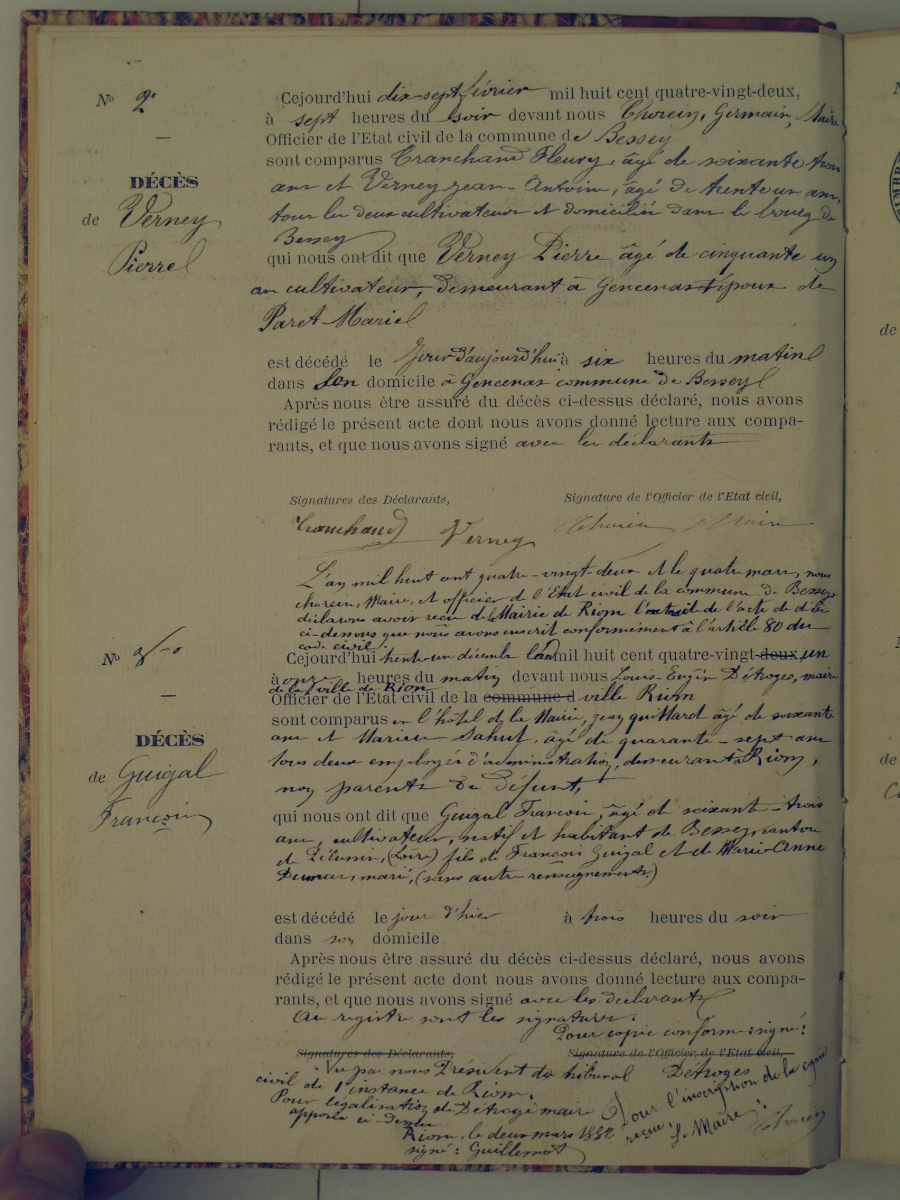 Nº 2
Cejourd'hui dix-sept février mil huit cent quatre-vingt-deux,
à sept heures du soir devant nous Thorein, Germain, Maire
Officier de l'Etat civil de la commune de Bessey
sont comparus Tranchand Fleury, âgé de soixante trois
ans et Verney Jean-Antoine, âgé de trente un ans,
tous les deux cultivateurs et domiciliés dans le bourg de
Bessey
DÉCÈS
de Verney
Pierre
qui nous ont dit que Verney Pierre âgé de cinquante un
ans cultivateur, demeurant à Gencenas époux de
Paret Marie
est décédé le jour d'aujourd'hui à six heures du matin
dans son domicile à Gencenas commune de Bessey
Après nous être assuré du décès ci-dessus déclaré, nous avons
rédigé le présent acte dont nous avons donné lecture aux compa-
rants, et que nous avons signé avec les déclarants
Signatures des Déclarants, Signature de l'Officier de l'Etat civil,
Tranchand Verney Thorein Maire
L'an mil huit cent quatre-vingt-deux et le quatre mars, nous
thorein, Maire, et officier de l'Etat civil de la commune de Bessey
déclarons avoir reçu de la Mairie de Riom l'extrait de l'acte de décès
ci-dessous que nous avons inscrit conformément à l'article 80 du
code civil.
Nº 3
Cejourd'hui trente-un décembre l'an mil huit cent quatre-vingt-deux un
à onze heures du matin devant nous Louis-Eugène Détroges, maire
de la ville de Riom
Officier de l'Etat civil de la commune d ville Riom
sont comparus en l'hôtel de la Mairie, jean quittard âgé de soixante
ans et Marien Sahut, âgé de quarante-sept ans
tous deux employés d'administration, demeurant à Riom,
non parents du défunt,
DÉCÈS
de Guigal
François
qui nous ont dit que Guigal François, âgé de soixante-trois
ans, cultivateur, natif et habitant de Bessey canton
de Pélussin, (Loire) fils de François Guigal et de Marie-Anne
marié, (sans autre renseignements.)
est décédé le jour d'hier à trois heures du soir
dans son domicile
Après nous être assuré du décès ci-dessus déclaré, nous avons
rédigé le présent acte dont nous avons donné lecture aux compa-
rants, et que nous avons signé avec les déclarants
Au registre sont les signatures.
Pour copie conforme: signé:
Signatures des Déclarants, Signature de l'Officier de l'Etat civil,
Détroges
Vu par nous Président du tribunal
civil de 1re instance de Riom.
Pour légalisation de Détroges maire
apposée ci-dessus
Riom, le deux mars 1882
signé: Guillemot
Pour l'inscription de la copie
reçue: Le Maire:
Thorein